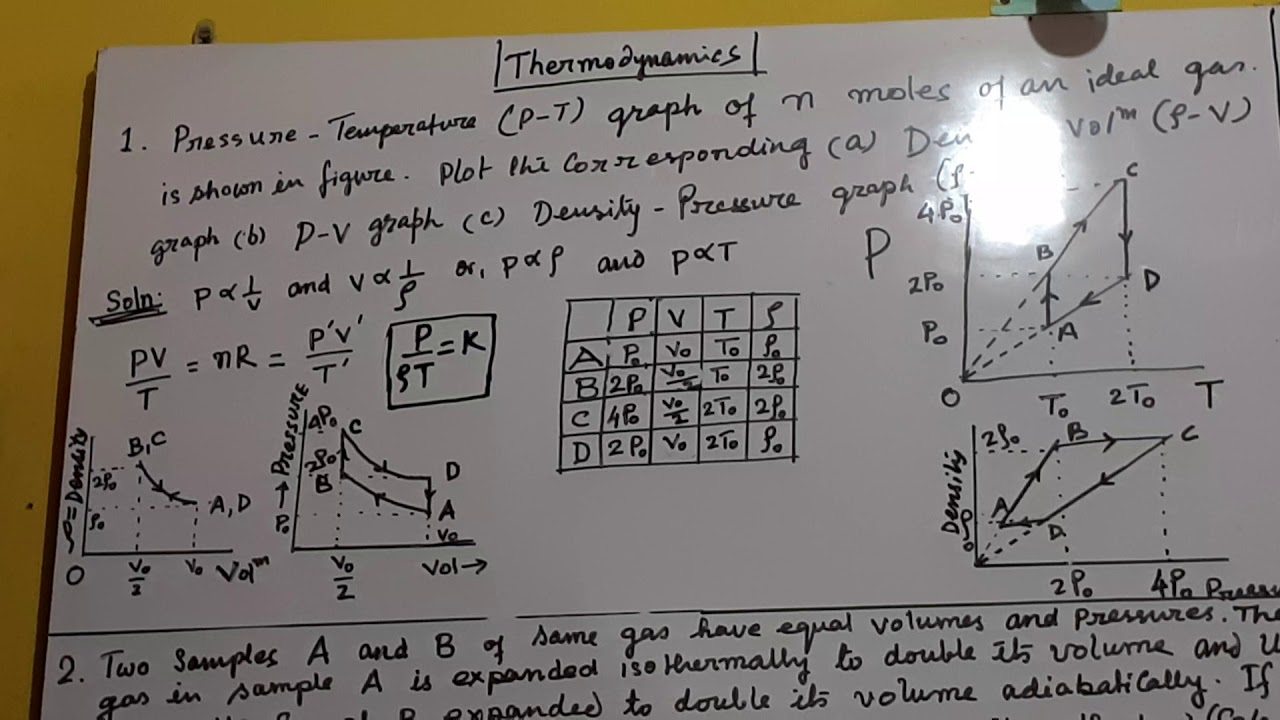 Thermodynamics
1. Pressure - Temperature (P-T) graph of n moles of an ideal gas.
is shown in figure. Plot the Corresponding (a) Den Volᵐ (ρ-V)
graph (b) P-V graph (c) Density - Pressure graph (ρ-
Soln: P∝1/V and V∝1/ρ or, P∝ρ and P∝T
PV/T = nR = P'V'/T'
P/ρT = K
P V T ρ
A P₀ V₀ T₀ ρ₀
B 2P₀ V₀/2 T₀ 2ρ₀
C 4P₀ V₀/2 2T₀ 2ρ₀
D 2P₀ V₀ 2T₀ ρ₀
P
4P₀
2P₀
P₀
C
B
D
A
O T₀ 2T₀ T
ρ=Density
2ρ₀
ρ₀
B,C
A,D
O V₀/2 V₀ Volᵐ
→ Pressure
4P₀
P₀
C
D
B
A
V₀
V₀/2 Vol→
Density
2ρ₀
ρ₀
B
C
A
D
O
2P₀ 4P₀
2. Two samples A and B of same gas have equal volumes and pressures. The
gas in sample A is expanded isothermally to double its volume and
B expanded to double its volume adiabatically. If